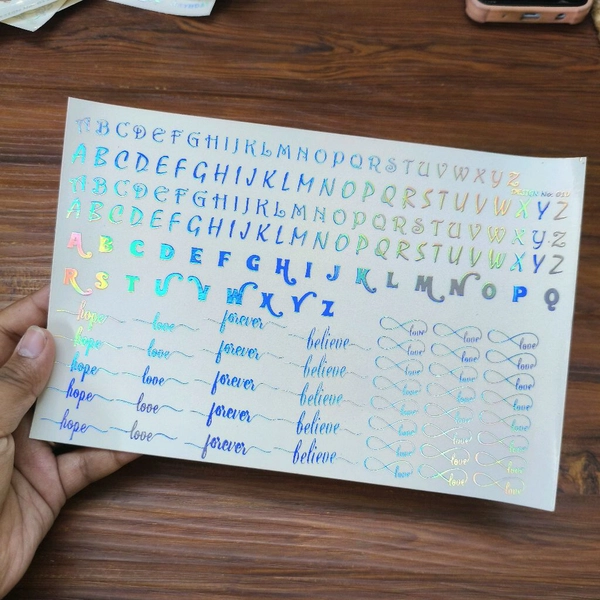 A B C D E F G H I J K L M N O P Q R S T U V W X Y Z
A B C D E F G H I J K L M N O P Q R S T U V W X Y Z
A B C D E F G H I J K L M N O P Q R S T U V W X Y Z
A B C D E F G H I J K L M N O P Q R S T U V W X Y Z
A B C D E F G H I J K L M N O P Q
R S T U V W X Y Z
hope love forever believe
hope love forever believe
hope love forever believe
hope love forever believe
hope love forever believe
love love love
love love love
love love love
love love love
love love love
love love love
love love love
love love love